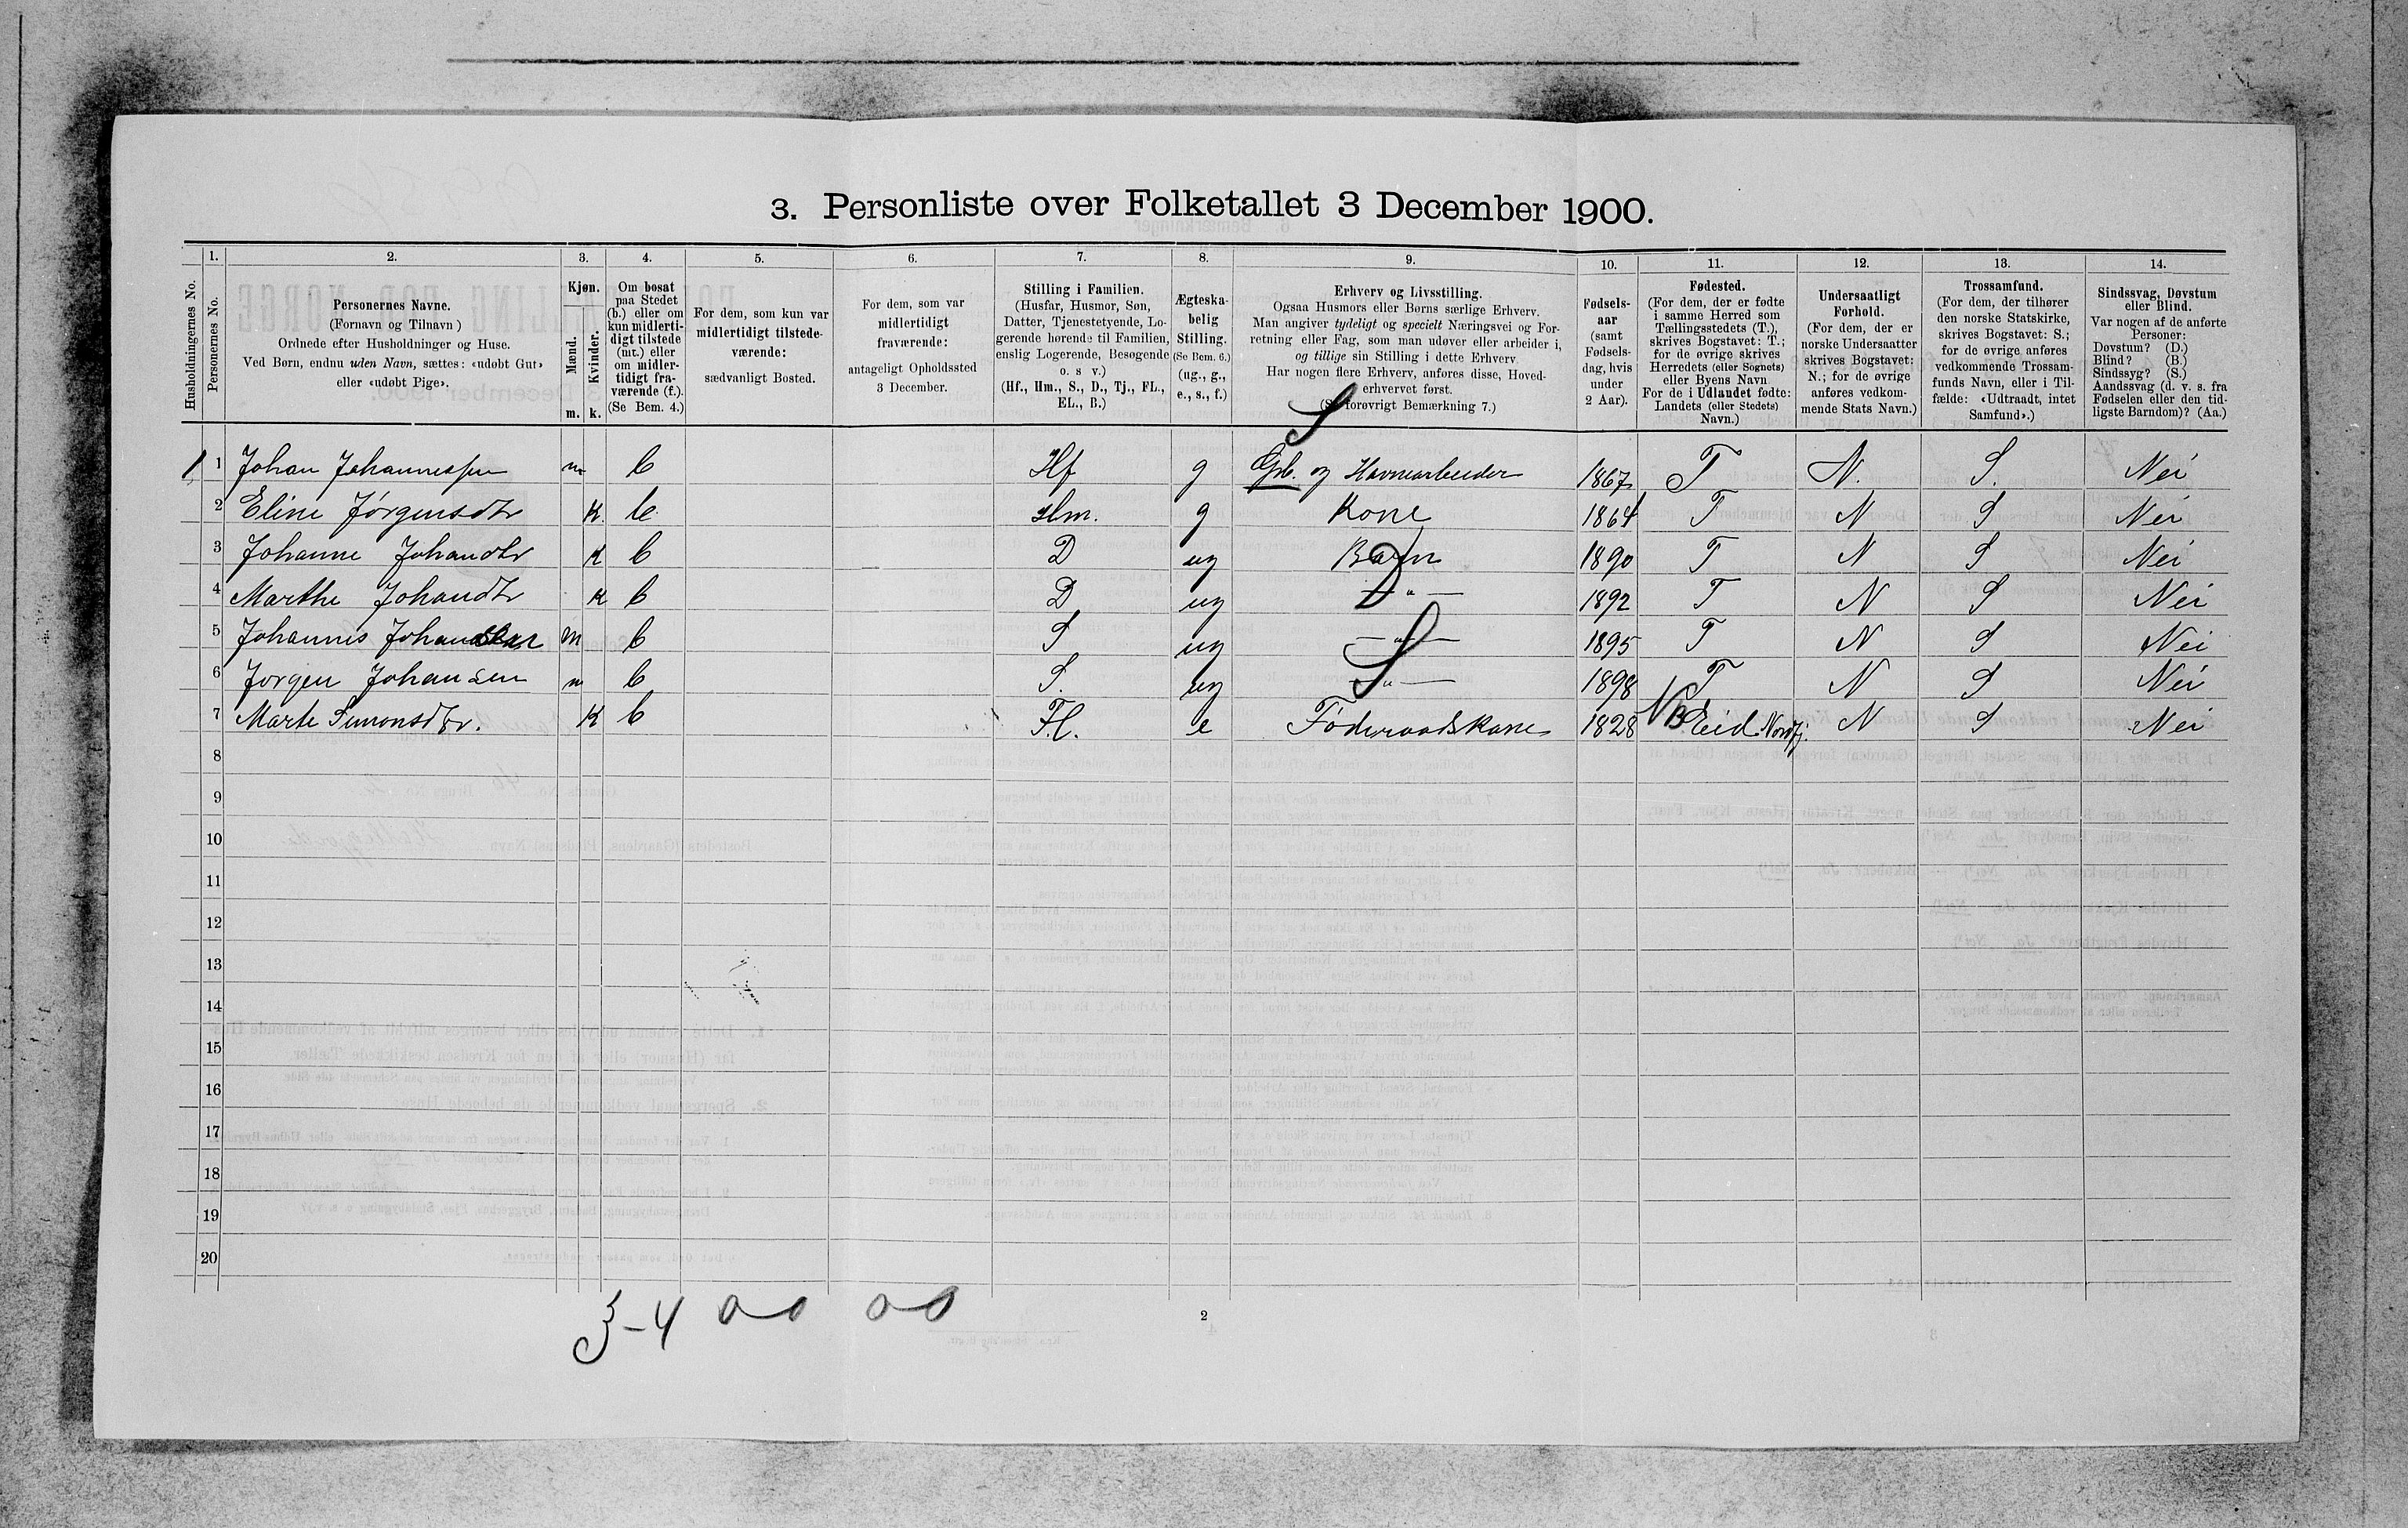 3. Personliste over Folketallet 3 December 1900.
1. 2. 3. 4. 5. 6. 7. 8. 9. 10. 11. 12. 13. 14.
Husholdningernes No.
Personernes No.
Personernes Navne.
(Fornavn og Tilnavn)
Ordnede efter Husholdninger og Huse.
Ved Børn, endnu uden Navn, sættes: «udøbt Gut»
eller «udøbt Pige».
Kjøn.
Mænd.
Kvinder.
m. k.
Om bosat
paa Stedet
(b.) eller om
kun midlerti-
digt tilstede
(mt.) eller
om midler-
tidigt fra-
værende (f.).
(Se Bem. 4.)
For dem, som kun var
midlertidigt tilstede-
værende:
sædvanligt Bosted.
For dem, som var
midlertidigt
fraværende:
antageligt Opholdssted
3 December.
Stilling i Familien.
(Husfar, Husmor, Søn,
Datter, Tjenestetyende, Lo-
gerende hørende til Familien,
enslig Logerende, Besøgende
o. s v.)
(Hf., Hm., S., D., Tj., FL.,
EL., B.)
Ægteska-
belig
Stilling.
(Se Bem. 6.)
(ug., g.,
e., s., f.)
Erhverv og Livsstilling.
Ogsaa Husmors eller Børns særlige Erhverv.
Man angiver tydeligt og specielt Næringsvei og For-
retning eller Fag, som man udøver eller arbeider i,
og tillige sin Stilling i dette Erhverv.
Har nogen flere Erhverv, anføres disse, Hoved-
erhvervet først.
(Se forøvrigt Bemærkning 7.)
Fødsels-
aar
(samt
Fødsels-
dag, hvis
under
2 Aar).
Fødested.
(For dem, der er fødte
i samme Herred som
Tællingsstedets (T.),
skrives Bogstavet: T.;
for de øvrige skrives
Herredets (eller Sognets)
eller Byens Navn.
For de i Udlandet fødte:
Landets (eller Stedets)
Navn.)
Undersaatligt
Forhold.
(For dem, der er
norske Undersaatter
skrives Bogstavet:
N.; for de øvrige
anføres vedkom-
mende Stats Navn.)
Trossamfund.
(For dem, der tilhører
den norske Statskirke,
skrives Bogstavet: S.;
for de øvrige anføres
vedkommende Trossam-
funds Navn, eller i Til-
fælde: «Udtraadt, intet
Samfund».)
Sindssvag, Døvstum
eller Blind.
Var nogen af de anførte
Personer:
Døvstum? (D.)
Blind? (B.)
Sindssyg? (S.)
Aandssvag (d. v. s. fra
Fødselen eller den tid-
ligste Barndom)? (Aa.)
S
1 1 Johan Johannessen m b Hf g Grb. og Havnearbeider 1867 T N. S. Nei
2 Eline Jørgensdtr k. b Hm. g Kone 1864 T N S Nei
3 Johanne Johandtr k b D ug Barn 1890 T N S Nei
4 Marthe Johandtr k b D ug — " — 1892 T N S Nei
5 Johannes Johansen m b S ug — " — 1895 T N S Nei
6 Jørgen Johansen m b S. ug — " — 1898 T N S Nei
7 Marte Simonsdtr. k b F.l. e Føderaadskone 1828 NB Eid Nordfj. N S Nei
8
9
10
11
12
13
14
15
16
17
18
19
20
3-4 0-0 0-0
2